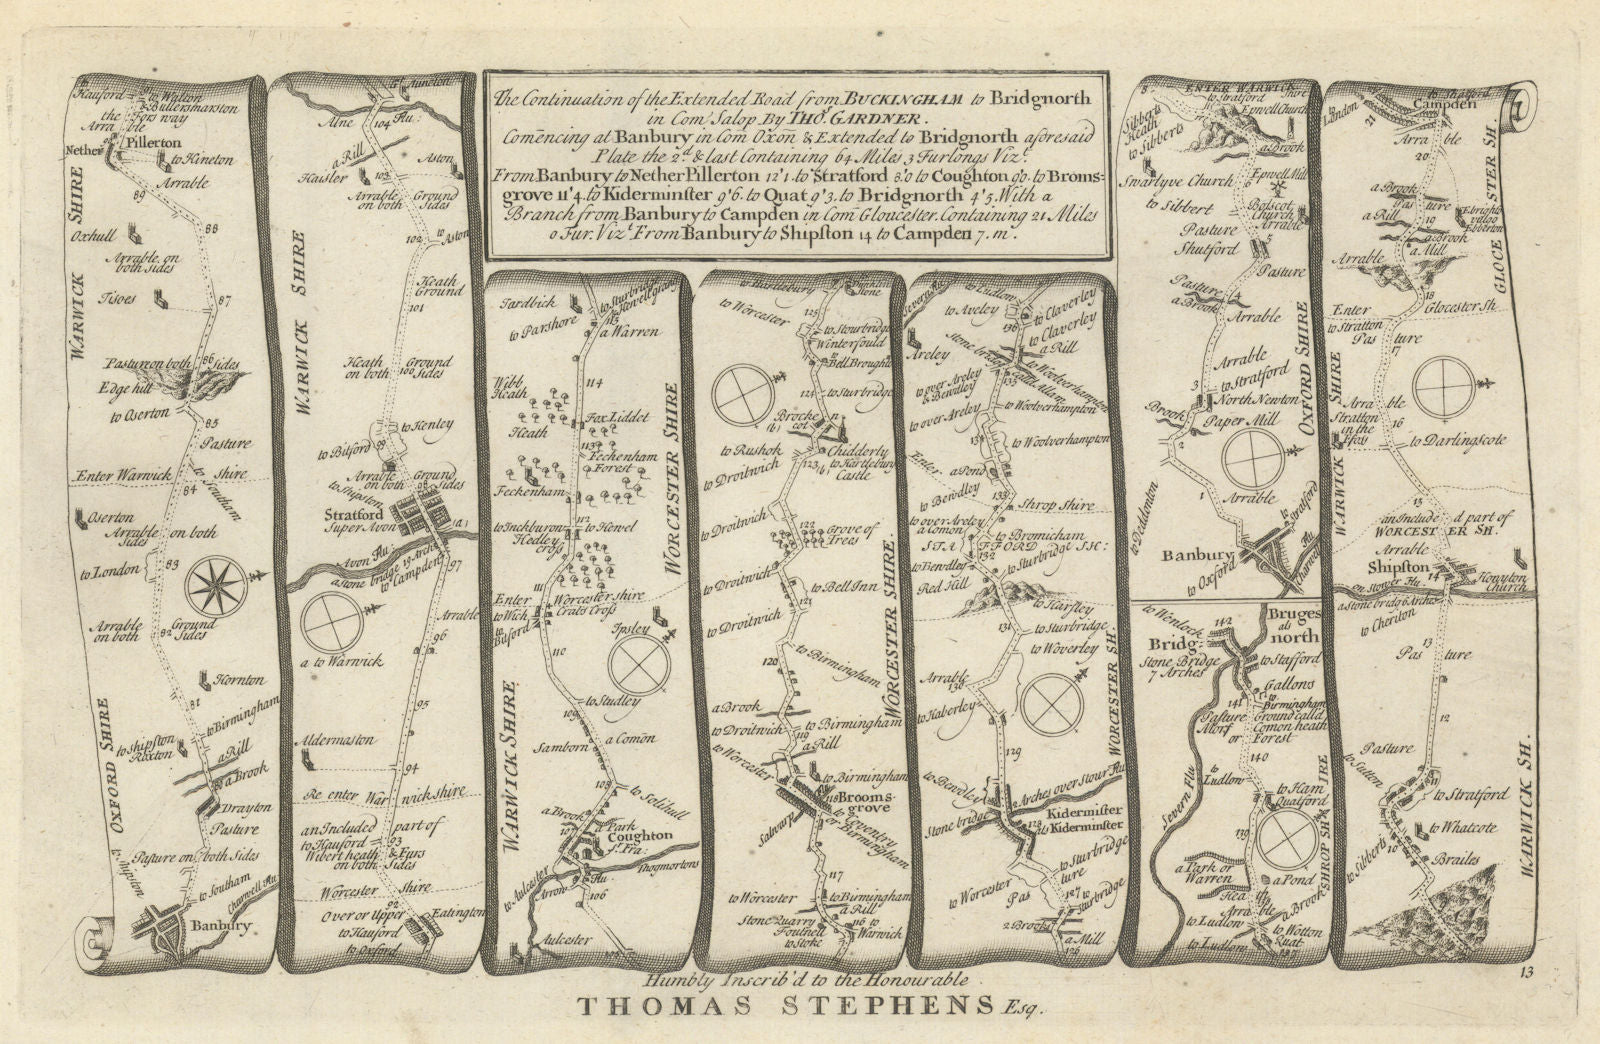 The Continuation of the Extended Road from BUCKINGHAM to Bridgnorth
in Com Salop By THO. GARDNER.
Comencing at Banbury in Com Oxon & Extended to Bridgnorth aforesaid
Plate the 2d & last Containing 64 Miles 3 Furlongs Viz.
From Banbury to Nether Pillerton 12'1. to Stratford 8'0 to Coughton 9'0. to Broms-
grove 11'4. to Kiderminster 9'6. to Quat 9'3. to Bridgnorth 4'5. With a
Branch from Banbury to Campden in Com Gloucester. Containing 21 Miles
0 Fur. Vizt. From Banbury to Shipston 14 to Campden 7. m.
to Walton
Fors way
the
Arra ble
Nether
Pillerton
to Kineton
Arrable
89
88
Oxhull
Arrable on
both Sides
Tisoes
87
WARWICK SHIRE
86
Pasture on both Sides
Edge hill
to Oserton
85
Pasture
Enter Warwick shire
84
to Southam
Oserton
Arrable on both
Sides
to London
83
Arrable Ground
on both 82 Sides
Hornton
81
to Birmingham
to Shipston
Roxton
a Rill
a Brook
OXFORD SHIRE
Drayton
Pasture
Pasture on both Sides
to Southam
Charwell Flu
Banbury
Alne Flu:
104
a Rill
Haisler
Aston
103
Arrable Ground
on both Sides
102
to Aston
WARWICK SHIRE
Heath
Ground
101
Heath Ground
on both 100 Sides
to Henley
to Bilford
Arrable Ground
on both Sides
to Shipston
98
Stratford
Super Avon
Avon Flu
a stone bridge 19 Arches
to Campden
97
Arrable
96
a to Warwick
95
Aldermaston
94
Re enter Warwickshire
an Included part of
to Hauford 93
Wibert heath & Furs
on both Sides
Worcester Shire
92
Over or Upper Eatington
to Hauford
to Oxford
Tardbick
to Sturbridg
to Parshore
115
a Warren
Wibb
Heath
114
Fox Liddet
Heath
113
Feckenham
Forest
Feckenham
112
to Inchburon to Hewel
Hedley
cross
WORCESTER SHIRE
111
Enter Worcestershire
to Wich Crabs Cross
to Buford
Ipsley
110
to Studley
109
Samborn a Comon
WARWICK SHIRE
108
to Solihull
a Brook
107
a Park
Coughton
Sr. Fra:
Throgmortons
to Aulcester
Arrow Flu
106
Aulcester
105
to Worcester
125
to Stourbridge
Wintersould
Bell Brought
to Sturbridg
124
Brocken
cot
to Rushok
Chidderly
123
to Hartlebury
Castle
to Droitwich
to Droitwich
122
Grove of
Trees
to Droitwich
to Bell Inn
121
to Droitwich
120
to Birmingham
WORCESTER SHIRE.
a Brook
to Droitwich
to Birmingham
119
a Rill
to Worcester
to Birmingham
118
Brooms-
grove
to Coventry
or Birmingham
Salwarp
117
to Worcester
to Birmingham
a Rill
Stone Quarry
116
to Warwick
Foutnell
to Stoke
Severn Flu
to Ludlow
to Claverley
to Aveley
136
to Claverley
a Rill
Stone bridg
Areley
135
to Wolverhampton
to over Areley
& Bewdley
to Woolverhampton
to over Areley
134
to Woolverhampton
Enter
a Pond
to Bewdley
133
Shrop shire
to over Areley
a Comon
to Bromicham
STAFFORD SH:
132
to Sturbridge
to Bewdley
Red Hill
to Harsley
131
to Sturbridge
to Woverley
Arrable
130
to Haberley
WORCESTER SH.
129
to Bewdley
2 Arches over Stour Flu
Kiderminster
als
Kiderminster
128
Stone bridge
to Sturbridge
to Worcester
Pas ture
127
to Sturbridge
2 Brooks
a Mill
126
8
ENTER WARWICK Shire
to Stratford
Epwell Church
Sibberts
Heath
to Sibberts
a Brook
7
Epwell Mill
Swarlyve Church
Bolscot
Church
to Sibbert
6
Arrable
Pasture
Shutford
5
Pasture
Pasture
4
a Brook
Arrable
OXFORD SHIRE
Arrable
3
to Stratford
North Newton
Brook
Paper Mill
2
1
Arrable
to Stratford
to Deddonton
Banbury
to Oxford
Charwell Flu
to Wenlock
142
Bruges
als
Bridg-north
Stone Bridge
7 Arches
to Stafford
Gallons
141
to Birmingham
Pasture Ground calld
Morf Comon heath
or Forest
140
Severn Flu
to Ludlow
to Ham
Qualford
139
a Park or
Warren
a Pond
138
Hea th
a Brook
Arra ble
to Ludlow
to Wotton
Quat
to Ludlow
137
SHROP SHIRE
to London
21
to Stratford
Campden
Arra ble
20
a Brook
Pas ture
a Rill
19
Ebright
village
Ebberton
a Brook
a Mill
Arrable
18
GLOCESTER SH.
Enter Glocester Sh
to Stratton
Pas ture
17
Arra ble
Stratton
in the
Foss
16
to Darlingscote
WARWICK SHIRE
15
an Include d part of
WORCESTER SH.
Arrable
Shipston
14
Honyton
Church
on Stower Flu
a Stone bridg 6 Arches
to Cheriton
13
Pas ture
12
Pasture
to Sutton
11
to Stratford
to Whatcote
10
to Sibberts
Brailes
WARWICK SH.
Humbly Inscrib'd to the Honourable
THOMAS STEPHENS Esq.
13